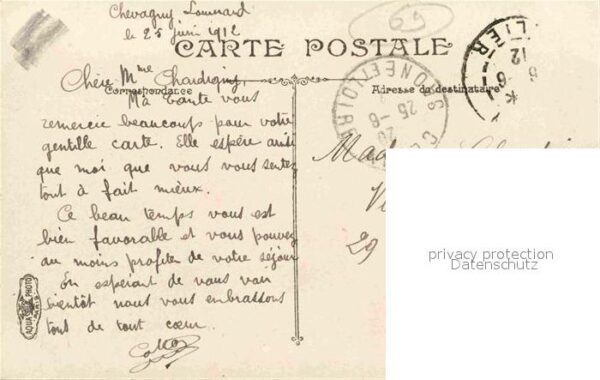 Chevagny Lournand
le 25 juin 1912
59
CARTE POSTALE
Correspondance
Adresse du destinataire
Chère Mme Chardigny
Ma tante vous
remercie beaucoup pour votre
gentille carte. Elle espère ainsi
que moi que vous vous sentez
tout à fait mieux.
Ce beau temps vous est
bien favorable et vous pouvez
au moins profiter de votre séjour
En espérant de vous voir
bientôt nous vous embrassons
tous de tout cœur.
AQUA PHOTO
PARIS
SAONE ET LOIRE
25-6
Mad
29
privacy protection
Datenschutz